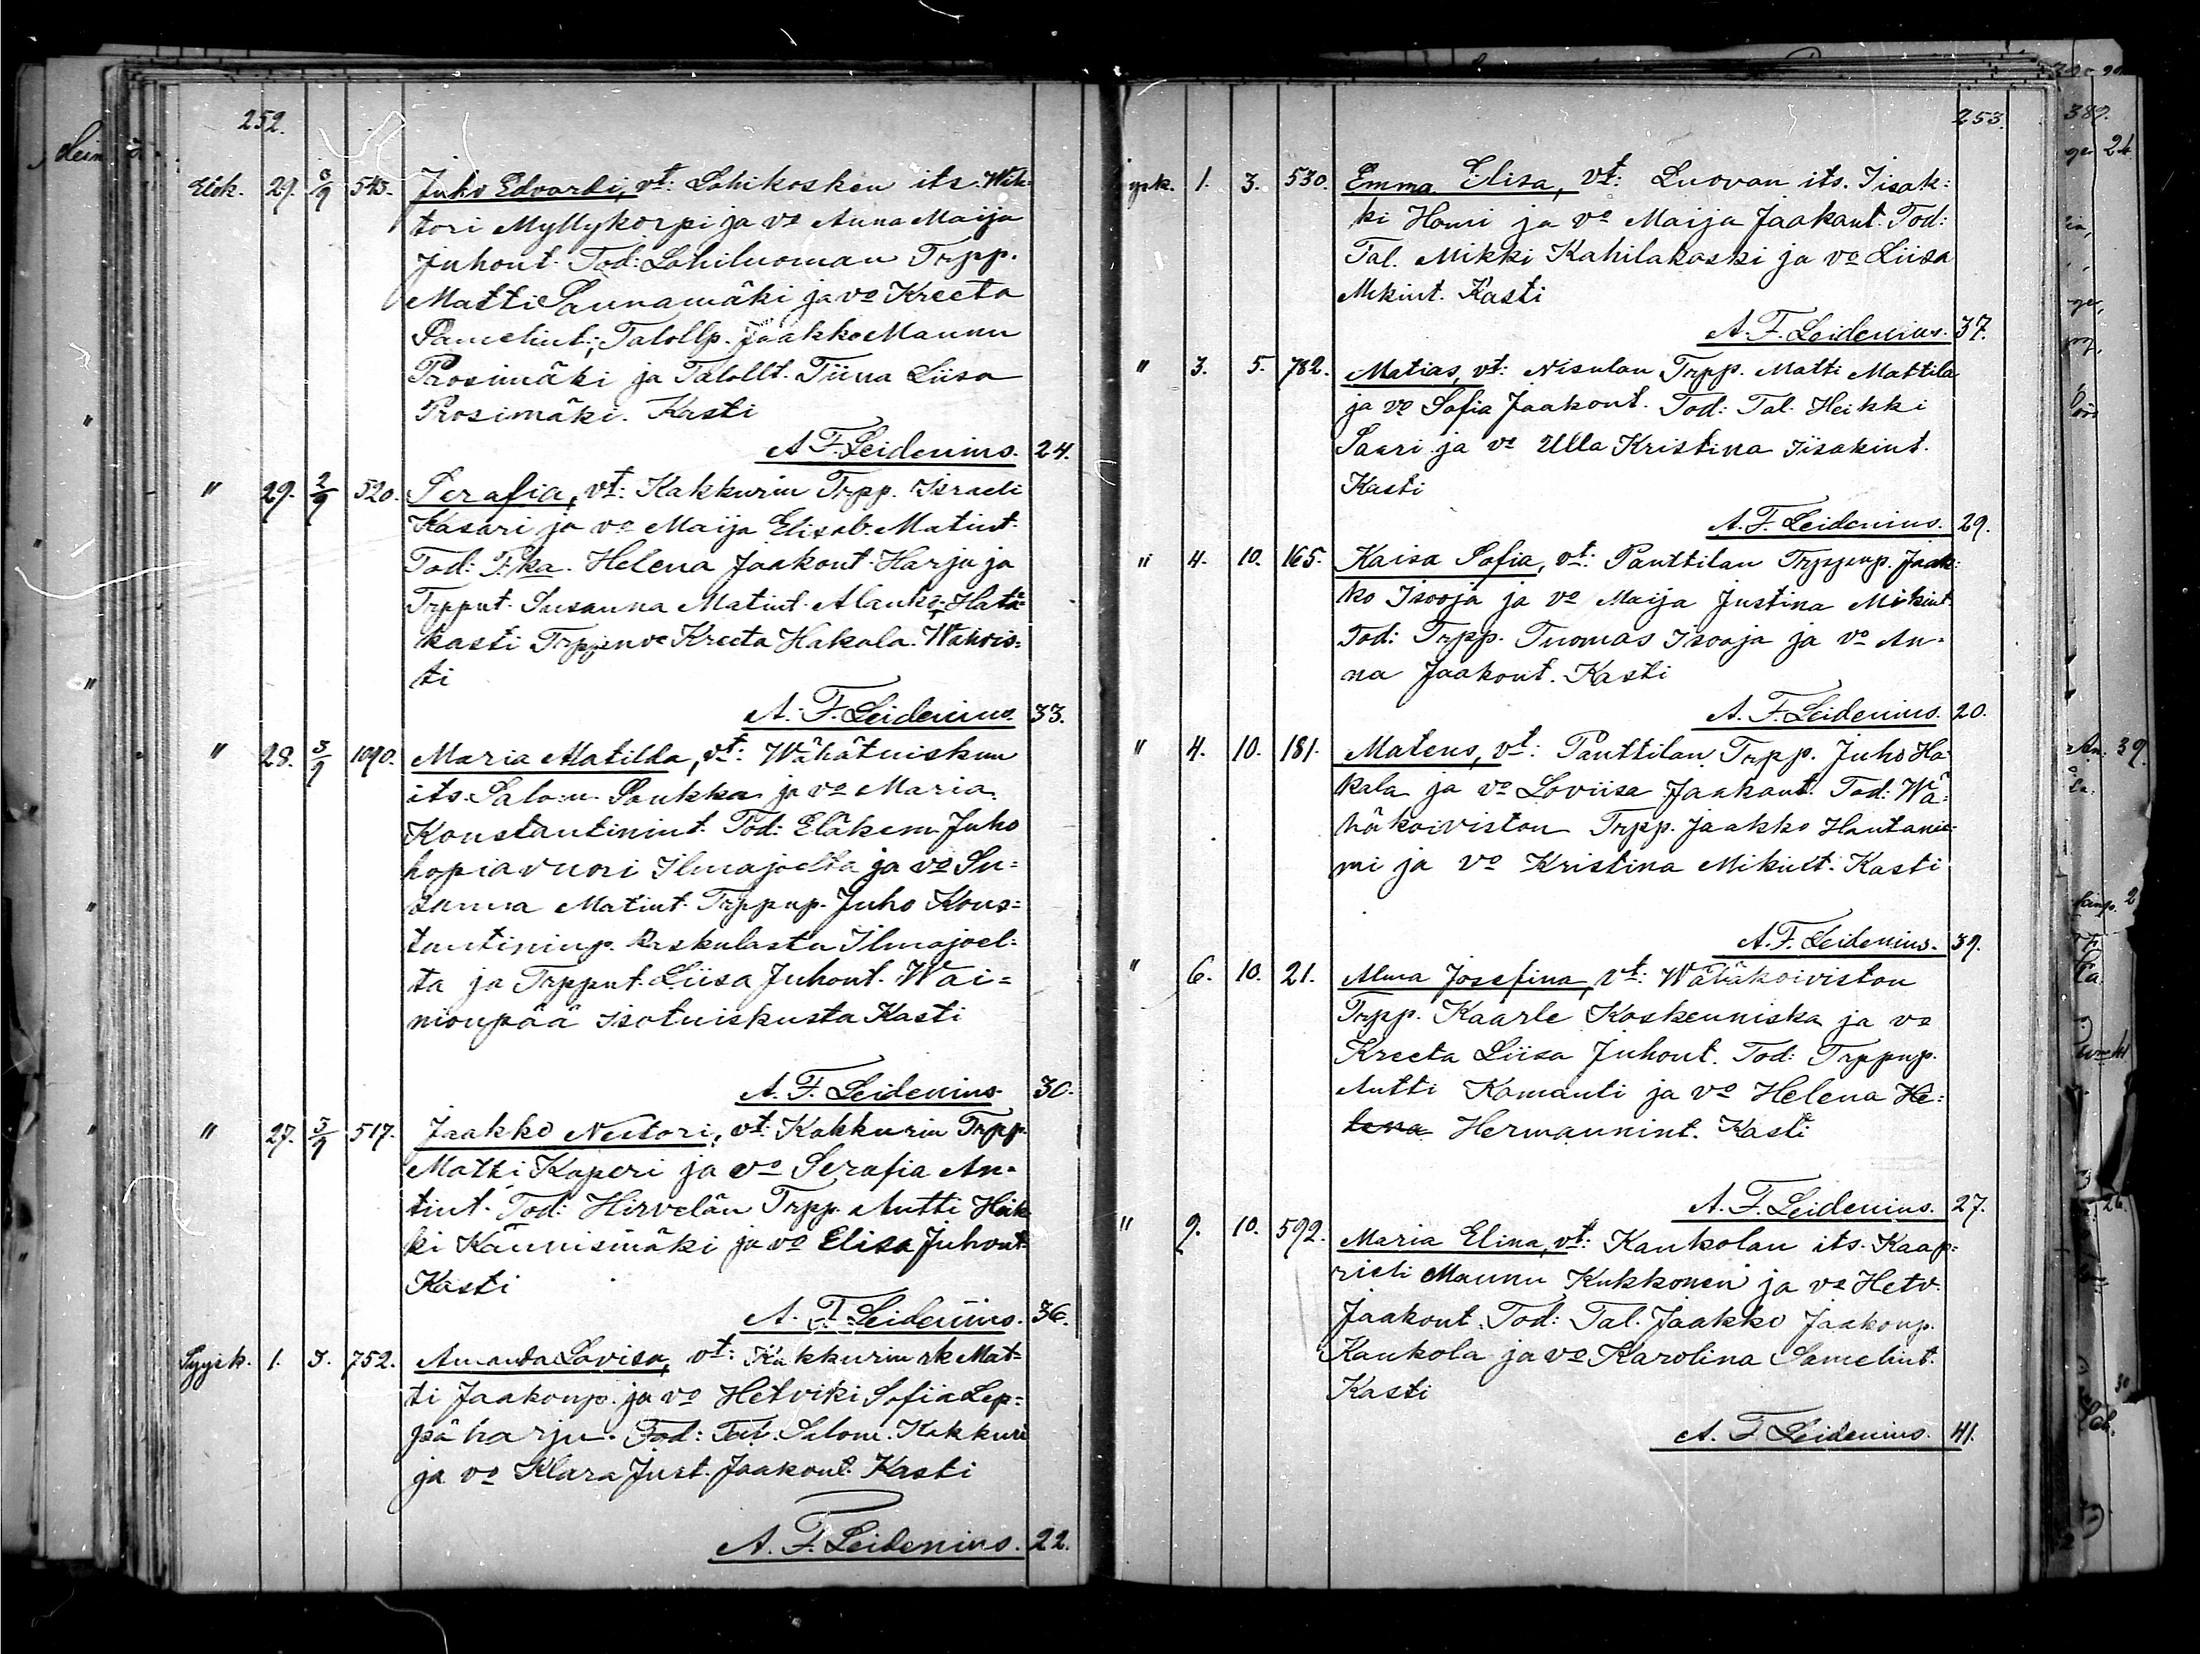 252.
Elok. 29. 3/9 543. Juho Edvardi, vt: Lohikosken its. Wih:
tori Myllykorpi ja vo Anna Maija
Juhont. Tod: Lohiluoman Trpp.
Matti Saunamäki ja vo Kreeta
Samelint.; Talollp. Jaakko Maunu
Prosimäki ja Talollt. Tiina Liisa
Prosimäki. Kasti
A. F. Leidenius. 24.
" 29. 2/9 520. Serafia, vt: Kakkurin Trpp. Israeli
Kasari ja vo Maija Elisab. Matint.
Tod: P.ka. Helena Jaakont. Harju ja
Trpput. Susanna Matint. Alanko. Hätä
kasti Trppinvo Kreeta Hakala. Wahvis:
ti
A. F. Leidenius. 33.
" 28. 3/9 1090. Maria Matilda, vt: Wähätuiskun
its. Salom. Saukka ja vo Maria
Konstantinint. Tod: Eläkem. Juho
hopiavuori Ilmajoelta ja vo Su=
sanna Matint. Trppup. Juho Kons=
tantininp. Kaskulasta Ilmajoel:
ta ja Trpput. Liisa Juhont. Wai=
nionpää isotuiskusta Kasti
A. F. Leidenius 30.
" 27. 3/9 517. Jaakko Nestori, vt: Kakkurin Trpp.
Matti Kaperi ja vo Serafia An=
tint. Tod: Hirvelän Trpp. Antti Heik
ki Kaunismäki ja vo Elisa Juhont.
Kasti
A. F. Leidenius. 36.
Syysk. 1. 3. 752. Amanda Lovisa, vt: Kakkurin rk Mat=
ti Jaakonp. ja vo Hetviki Sofia Lep=
päharju. Tod: Tal. Salom. Kakkuri
ja vo Klara Just. Jaakont. Kasti
A. F. Leidenius. 22.
253.
ysk. 1. 3. 530. Emma Elisa, vt: Luovan its. Iisak:
ki Homi ja vo Maija Jaakont. Tod:
Tal. Mikki Kahilakoski ja vo Liisa
Mikint. Kasti
A. F. Leidenius. 37.
" 3. 5. 782. Matias, vt: Nisulan Trpp. Matti Mattila
ja vo Sofia Jaakont. Tod: Tal. Heikki
Saari ja vo Ulla Kristina Iisakint.
Kasti
A. F. Leidenius. 29.
" 4. 10. 165. Kaisa Sofia, vt: Panttilan Trppup. Jaak:
ko Isooja ja vo Maija Justina Mikint.
Tod: Trpp. Tuomas Isooja ja vo An=
na Jaakont. Kasti
A. F. Leidenius. 20.
" 4. 10. 181. Mateus, vt: Panttilan Trpp. Juho Ha=
kala ja vo Loviisa Jaakont. Tod: Wä=
häkoiviston Trpp. Jaakko Hautanie:
mi ja vo Kristina Mikint. Kasti
A. F. Leidenius. 39.
" 6. 10. 21. Alma Josefina, vt: Wähäkoiviston
Trpp. Kaarle Koskenniska ja vo
Kreeta Liisa Juhont. Tod: Trppup.
Antti Komanti ja vo Helena He:
lena Hermannint. Kasti
A. F. Leidenius. 27.
" 9. 10. 592. Maria Elina, vt: Kaukolan its. Kaap:
rieli Maunu Kukkonen ja vo Hetv.
Jaakont. Tod: Tal. Jaakko Jaakonp.
Kaukola ja vo Karolina Samelint.
Kasti
A. F. Leidenius. 41.